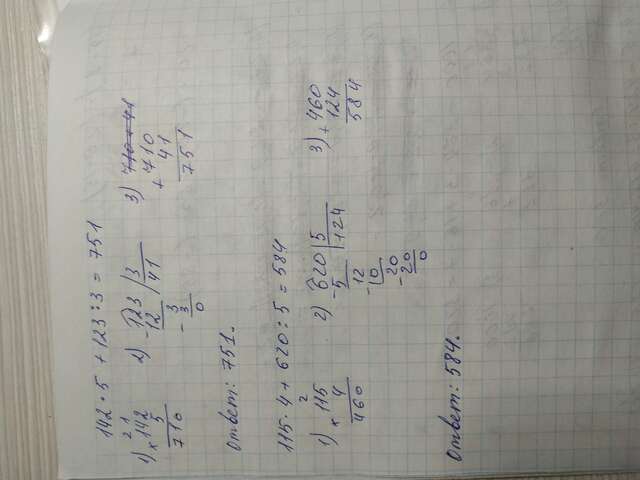 142 · 5 + 123 : 3 = 751
1) 2 1
× 142
5
710
2) - 123 | 3
12 | 41
- 3
3
0
3) 710 + 41
+ 710
41
751
Ответ: 751.
115 · 4 + 620 : 5 = 584
1) 2
× 115
4
460
2) - 620 | 5
5 | 124
- 12
10
- 20
20
0
3) + 460
124
584
Ответ: 584.